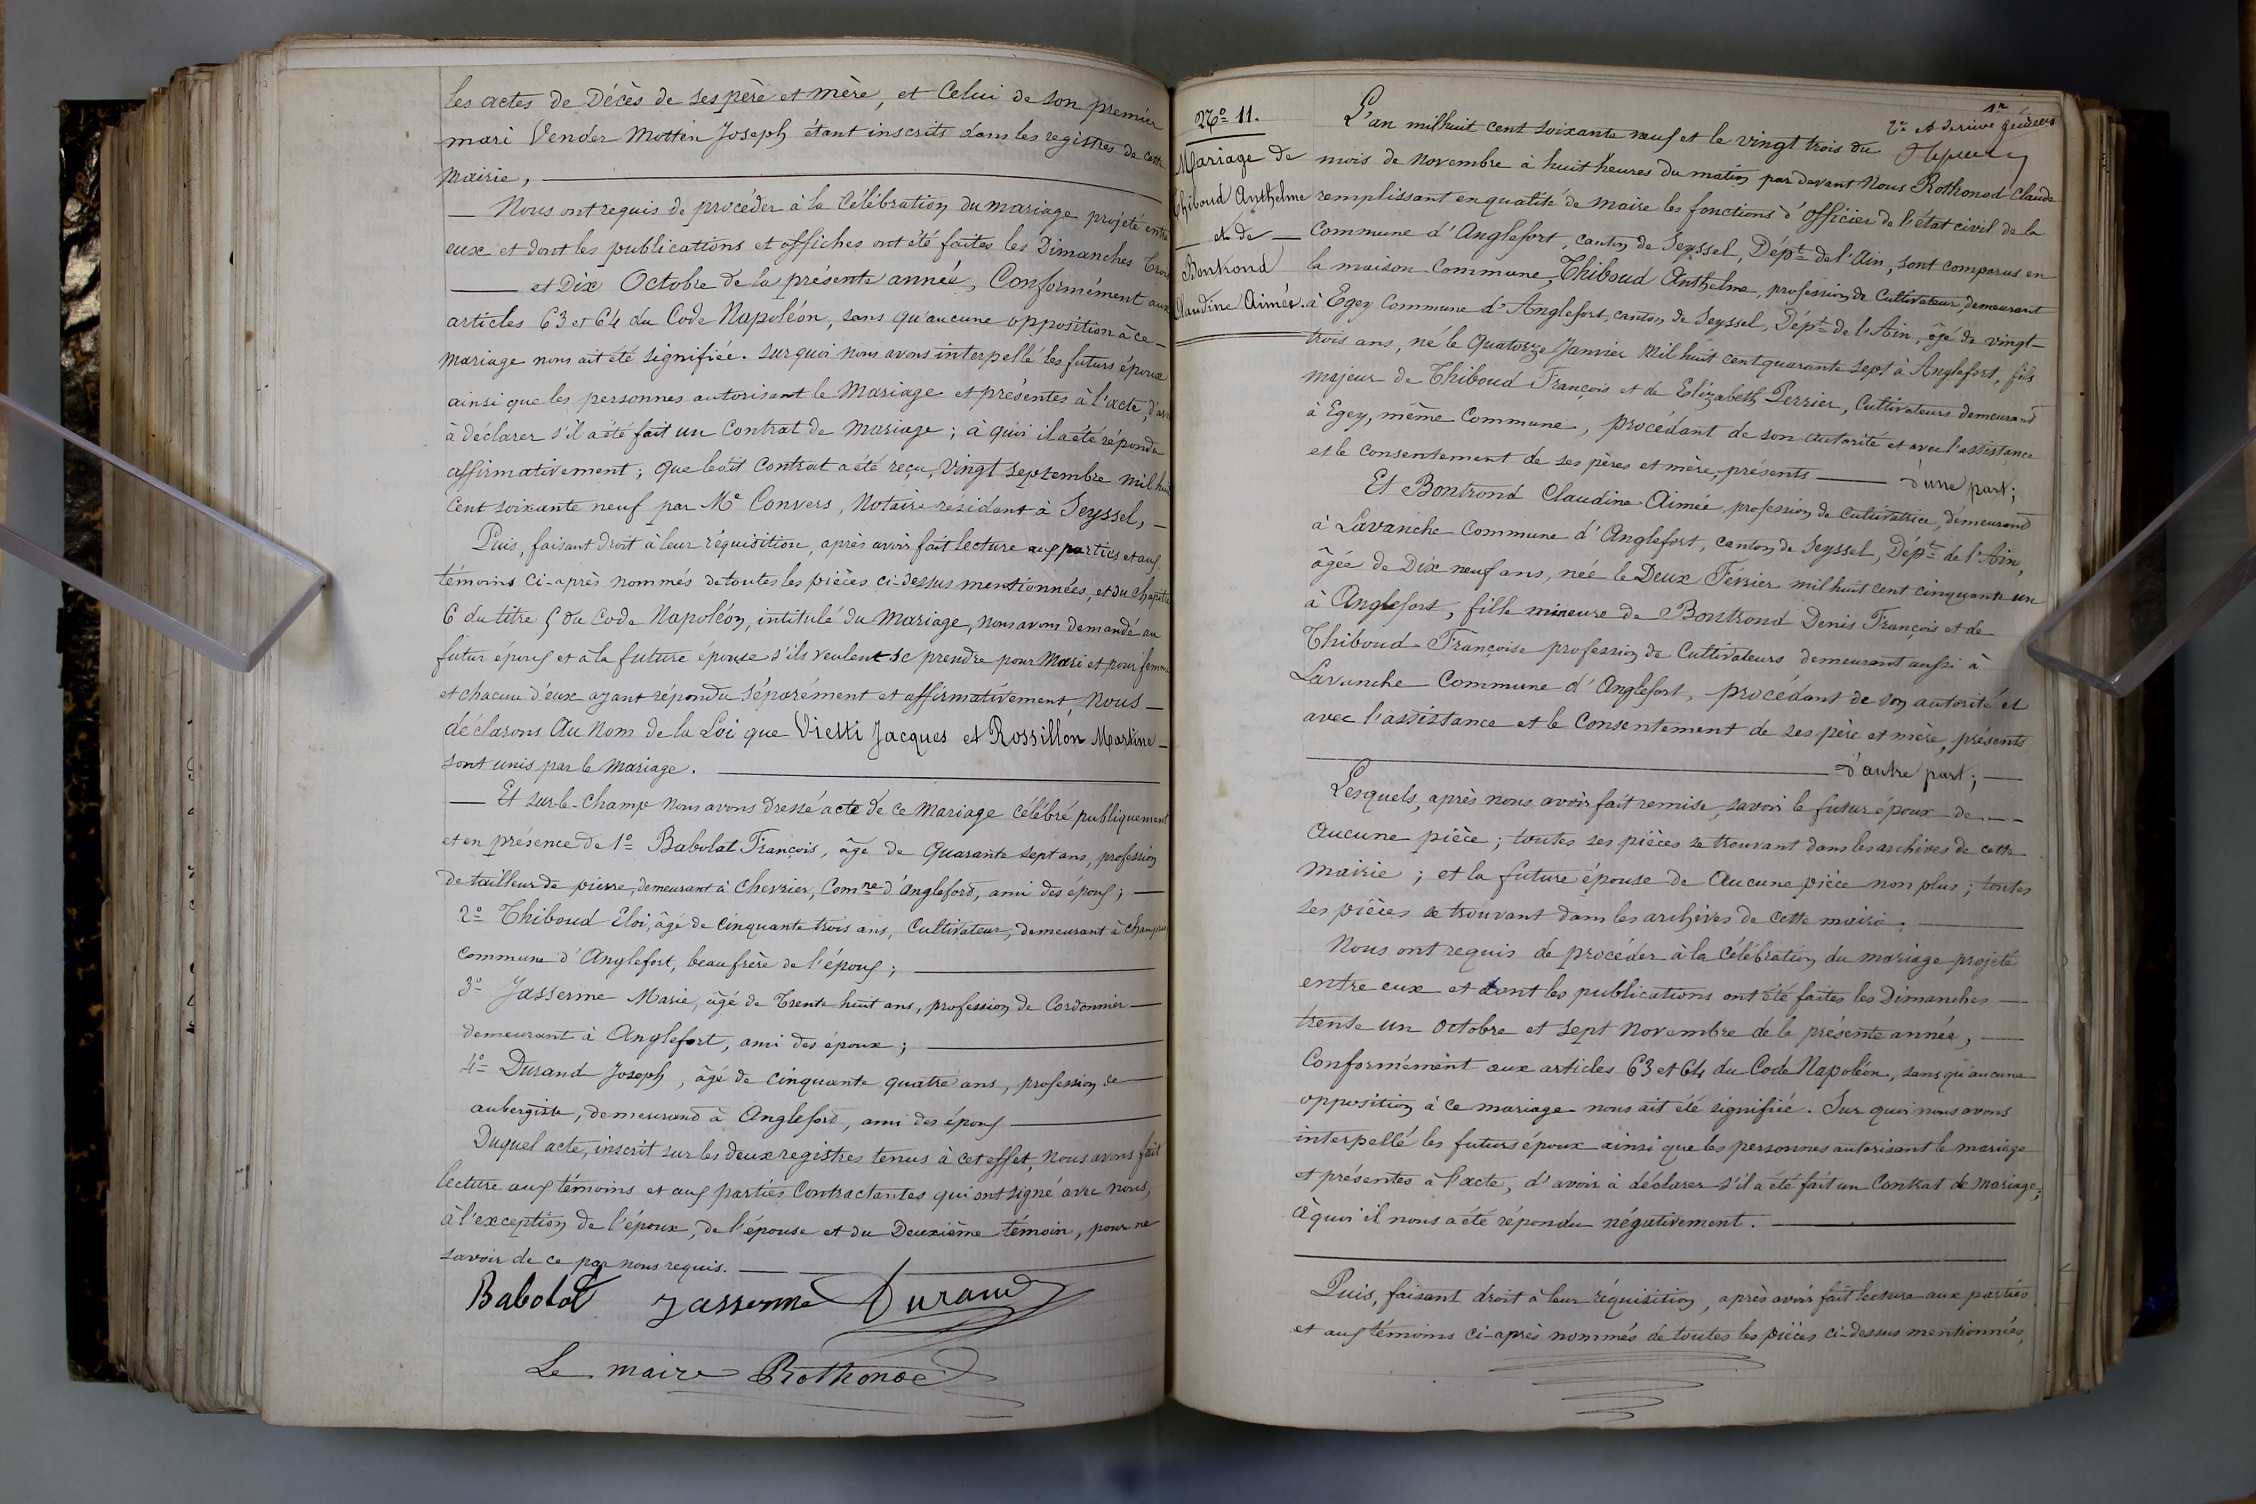 les actes de Décès de ses père et mère, et celui de son premier
mari Vender Motten Joseph étant inscrits dans les registres de cette
Mairie,
Nous ont requis de procéder à la Célébration du mariage projeté entre
eux et dont les publications et affiches ont été faites les Dimanches Trois
et Dix Octobre de la présente année, Conformément aux
articles 63 et 64 du Code Napoléon, sans qu'aucune opposition à ce
mariage nous ait été signifiée. Sur quoi nous avons interpellé les futurs époux
ainsi que les personnes autorisant le Mariage et présentes à l'acte, d'avoir
à déclarer s'il a été fait un Contrat de Mariage ; à quoi il a été répondu
affirmativement ; que ledit Contrat a été reçu, Vingt Septembre mil huit
Cent soixante neuf par Me Convers, Notaire résidant à Seyssel,
Puis, faisant droit à leur réquisition, après avoir fait lecture aux parties et aux
témoins ci-après nommés de toutes les pièces ci-dessus mentionnées, et du Chapitre
6 du titre 5 du Code Napoléon, intitulé du Mariage, nous avons demandé au
futur époux et à la future épouse s'ils veulent se prendre pour Mari et pour femme
et chacun d'eux ayant répondu séparément et affirmativement, Nous
déclarons Au Nom de la Loi que Vietti Jacques et Rossillon Martine
sont unis par le Mariage.
Et sur-le-champ nous avons dressé acte de ce Mariage célébré publiquement
et en présence de 1° Babolat François, âgé de quarante sept ans, profession
de tailleur de pierre, demeurant à Chevrier, Comne d'anglefort, ami des époux ;
2° Thiboud Eloi, âgé de cinquante trois ans, Cultivateur, demeurant à
Commune d'Anglefort, beau frère de l'époux ;
3° Jasserme Marie, âgé de Trente huit ans, profession de Cordonnier
demeurant à Anglefort, ami des époux ;
4° Durand Joseph, âgé de cinquante quatre ans, profession de
aubergiste, demeurant à Anglefort, ami des époux
Duquel acte, inscrit sur les deux registres tenus à cet effet, Nous avons fait
lecture aux témoins et aux parties Contractantes qui ont signé avec nous,
à l'exception de l'époux, de l'épouse et du Deuxième témoin, pour ne
savoir de ce par nous requis.
Babolat Jasserme Durand
Le maire Rothonod
N° 11.
Mariage de
Thiboud Anthelme
et de
Bontrond
Claudine Aimée.
L'an mil huit cent soixante neuf et le vingt trois du
mois de Novembre à huit heures du matin par devant Nous Rothonod Claude
remplissant en qualité de Maire les fonctions d'officier de l'état civil de la
Commune d'Anglefort, canton de Seyssel, Dépt de l'Ain, sont comparus en
la maison Commune, Thiboud Anthelme, profession de Cultivateur, demeurant
à Egey Commune d'Anglefort, canton de Seyssel, Dépt de l'Ain, âgé de vingt-
trois ans, né le Quatorze Janvier Mil huit cent quarante sept à Anglefort, fils
majeur de Thiboud François et de Elizabeth Perrier, Cultivateurs demeurant
à Egey, même Commune, procédant de son autorité et avec l'assistance
et le consentement de ses pères et mère, présents d'une part ;
Et Bontrond Claudine Aimée, profession de Cultivatrice, demeurant
à Lavanche Commune d'Anglefort, canton de Seyssel, Dépt de l'Ain,
âgée de Dix neuf ans, née le Deux Février mil huit cent cinquante un
à Anglefort, fille mineure de Bontrond Denis François et de
Thiboud Françoise profession de Cultivateurs demeurant aussi à
Lavanche Commune d'Anglefort, procédant de son autorité et
avec l'assistance et le Consentement de ses père et mère, présents
d'autre part ;
Lesquels, après nous avoir fait remise, savoir le futur époux de
Aucune pièce ; toutes ses pièces se trouvant dans les archives de cette
Mairie ; et la future épouse de Aucune pièce non plus ; toutes
ses pièces se trouvant dans les archives de cette mairie.
Nous ont requis de procéder à la Célébration du mariage projeté
entre eux et dont les publications ont été faites les Dimanches
trente un Octobre et sept Novembre de la présente année,
Conformément aux articles 63 et 64 du Code Napoléon, sans qu'aucune
opposition à ce mariage nous ait été signifiée. Sur quoi nous avons
interpellé les futurs époux ainsi que les personnes autorisant le mariage
et présentes à l'acte, d'avoir à déclarer s'il a été fait un Contrat de Mariage ;
à quoi il nous a été répondu négativement.
Puis, faisant droit à leur réquisition, après avoir fait lecture aux parties
et aux témoins ci-après nommés de toutes les pièces ci-dessus mentionnées,